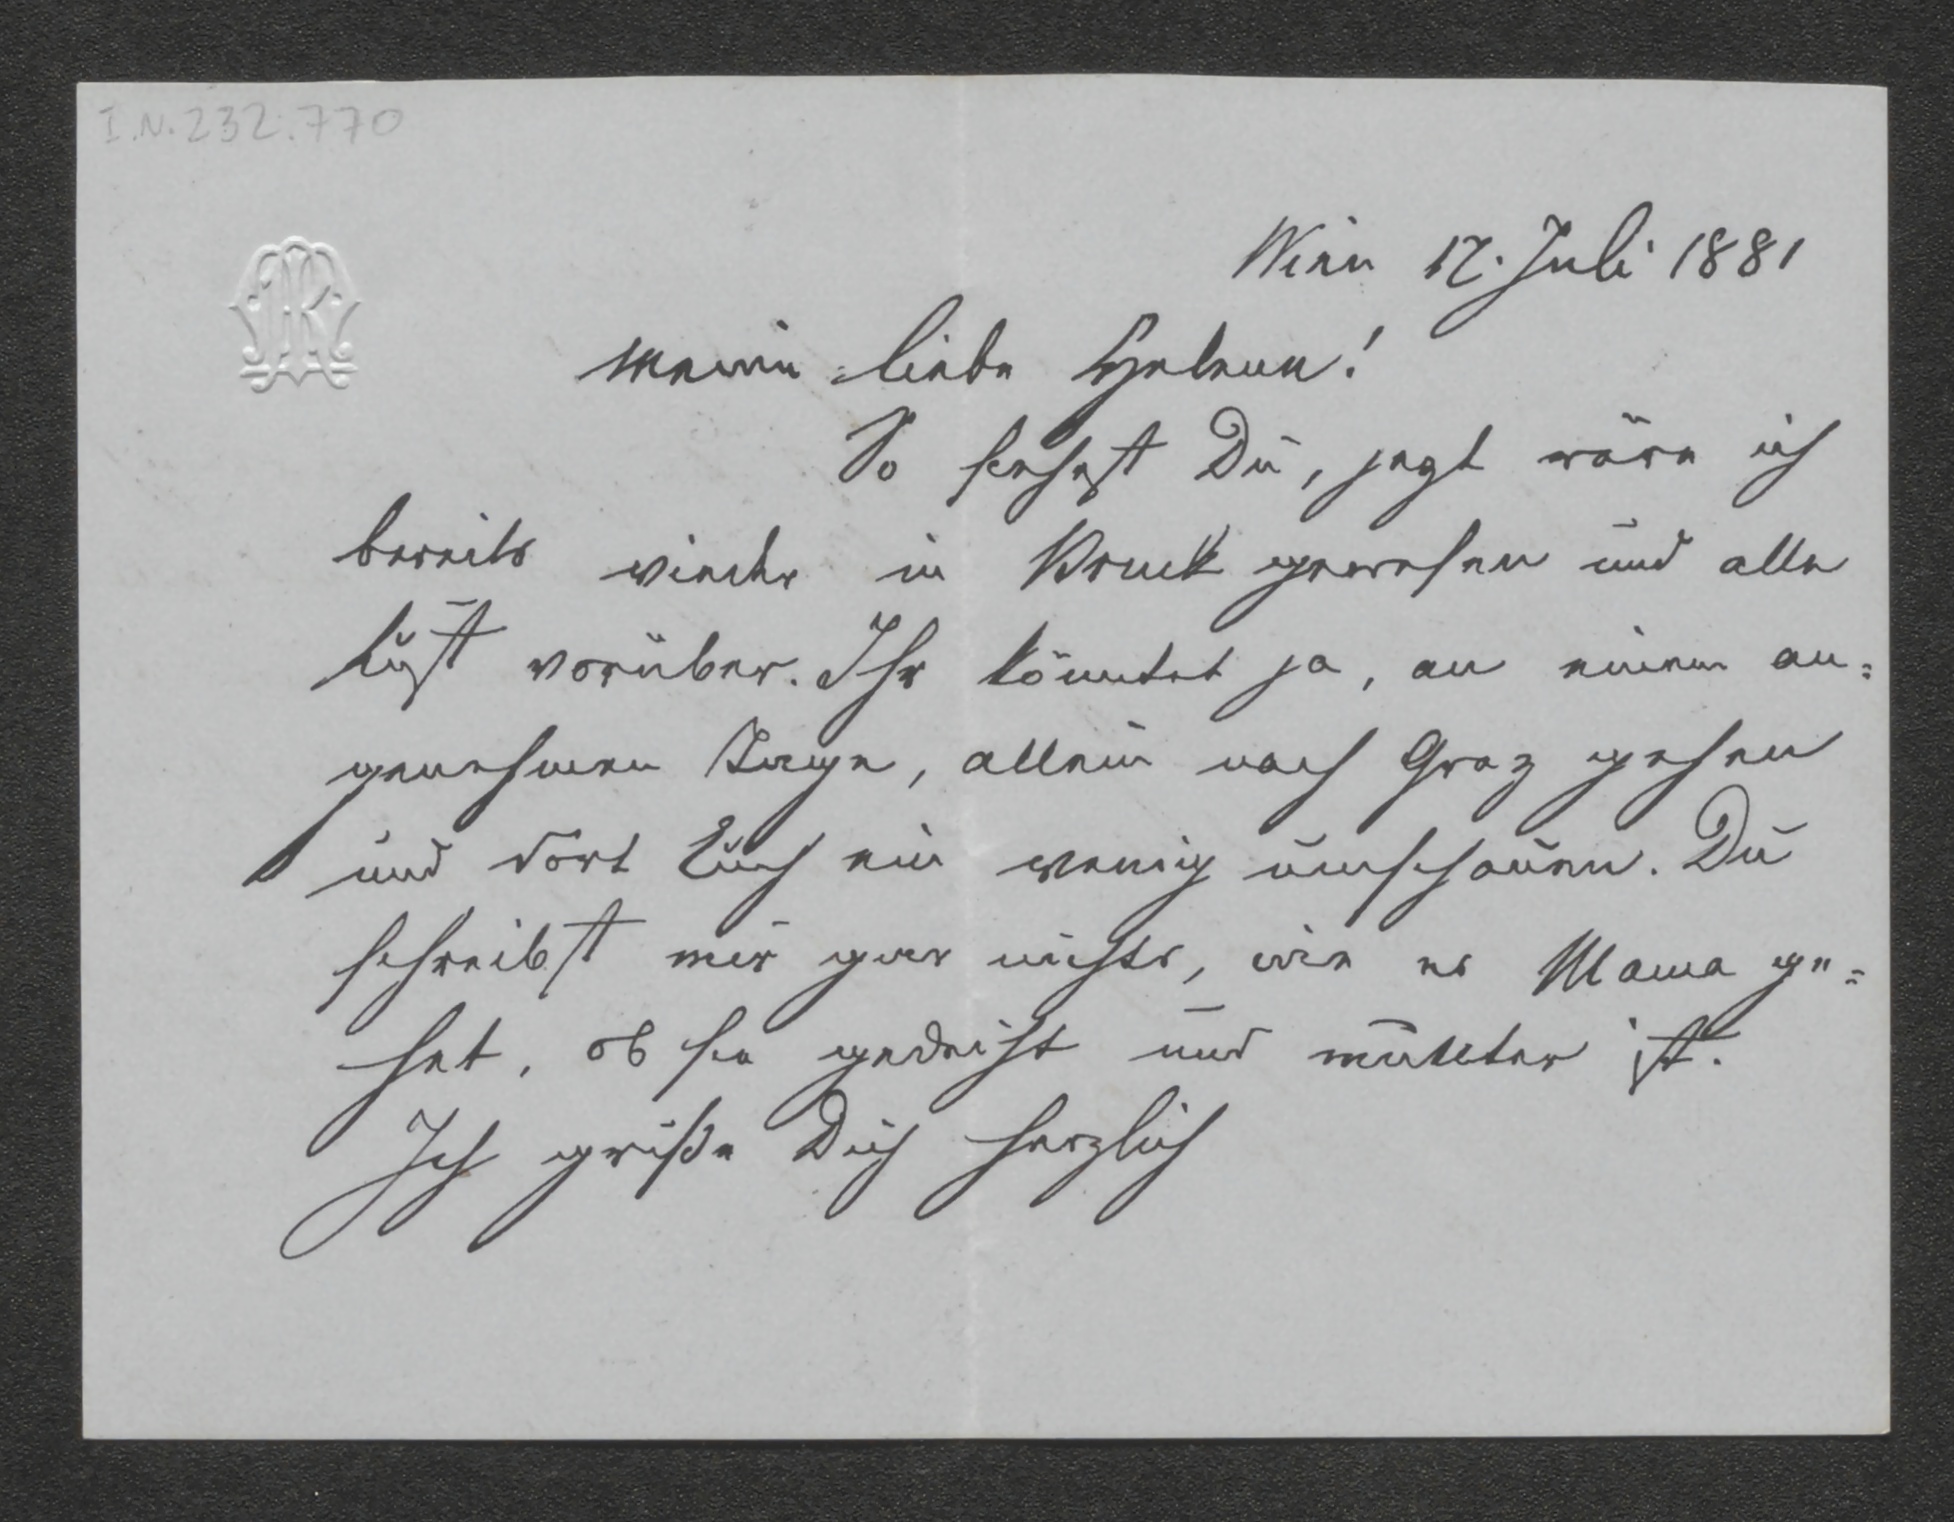 I.N. 232.770
Wien 12. Juli 1881
Meine liebe Helene!
So siehst Du, jezt wäre ich
bereits wieder in Bruck gewesen und alle
Lust vorüber. Ihr könntet ja, an einem an-
genehmen Tage, allein nach Graz gehen
und dort Euch ein wenig umschauen. Du
schreibst mir gar nichts, wie es Mama ge-
het, ob sie gedeiht und munter ist.
Ich grüße Dich herzlich